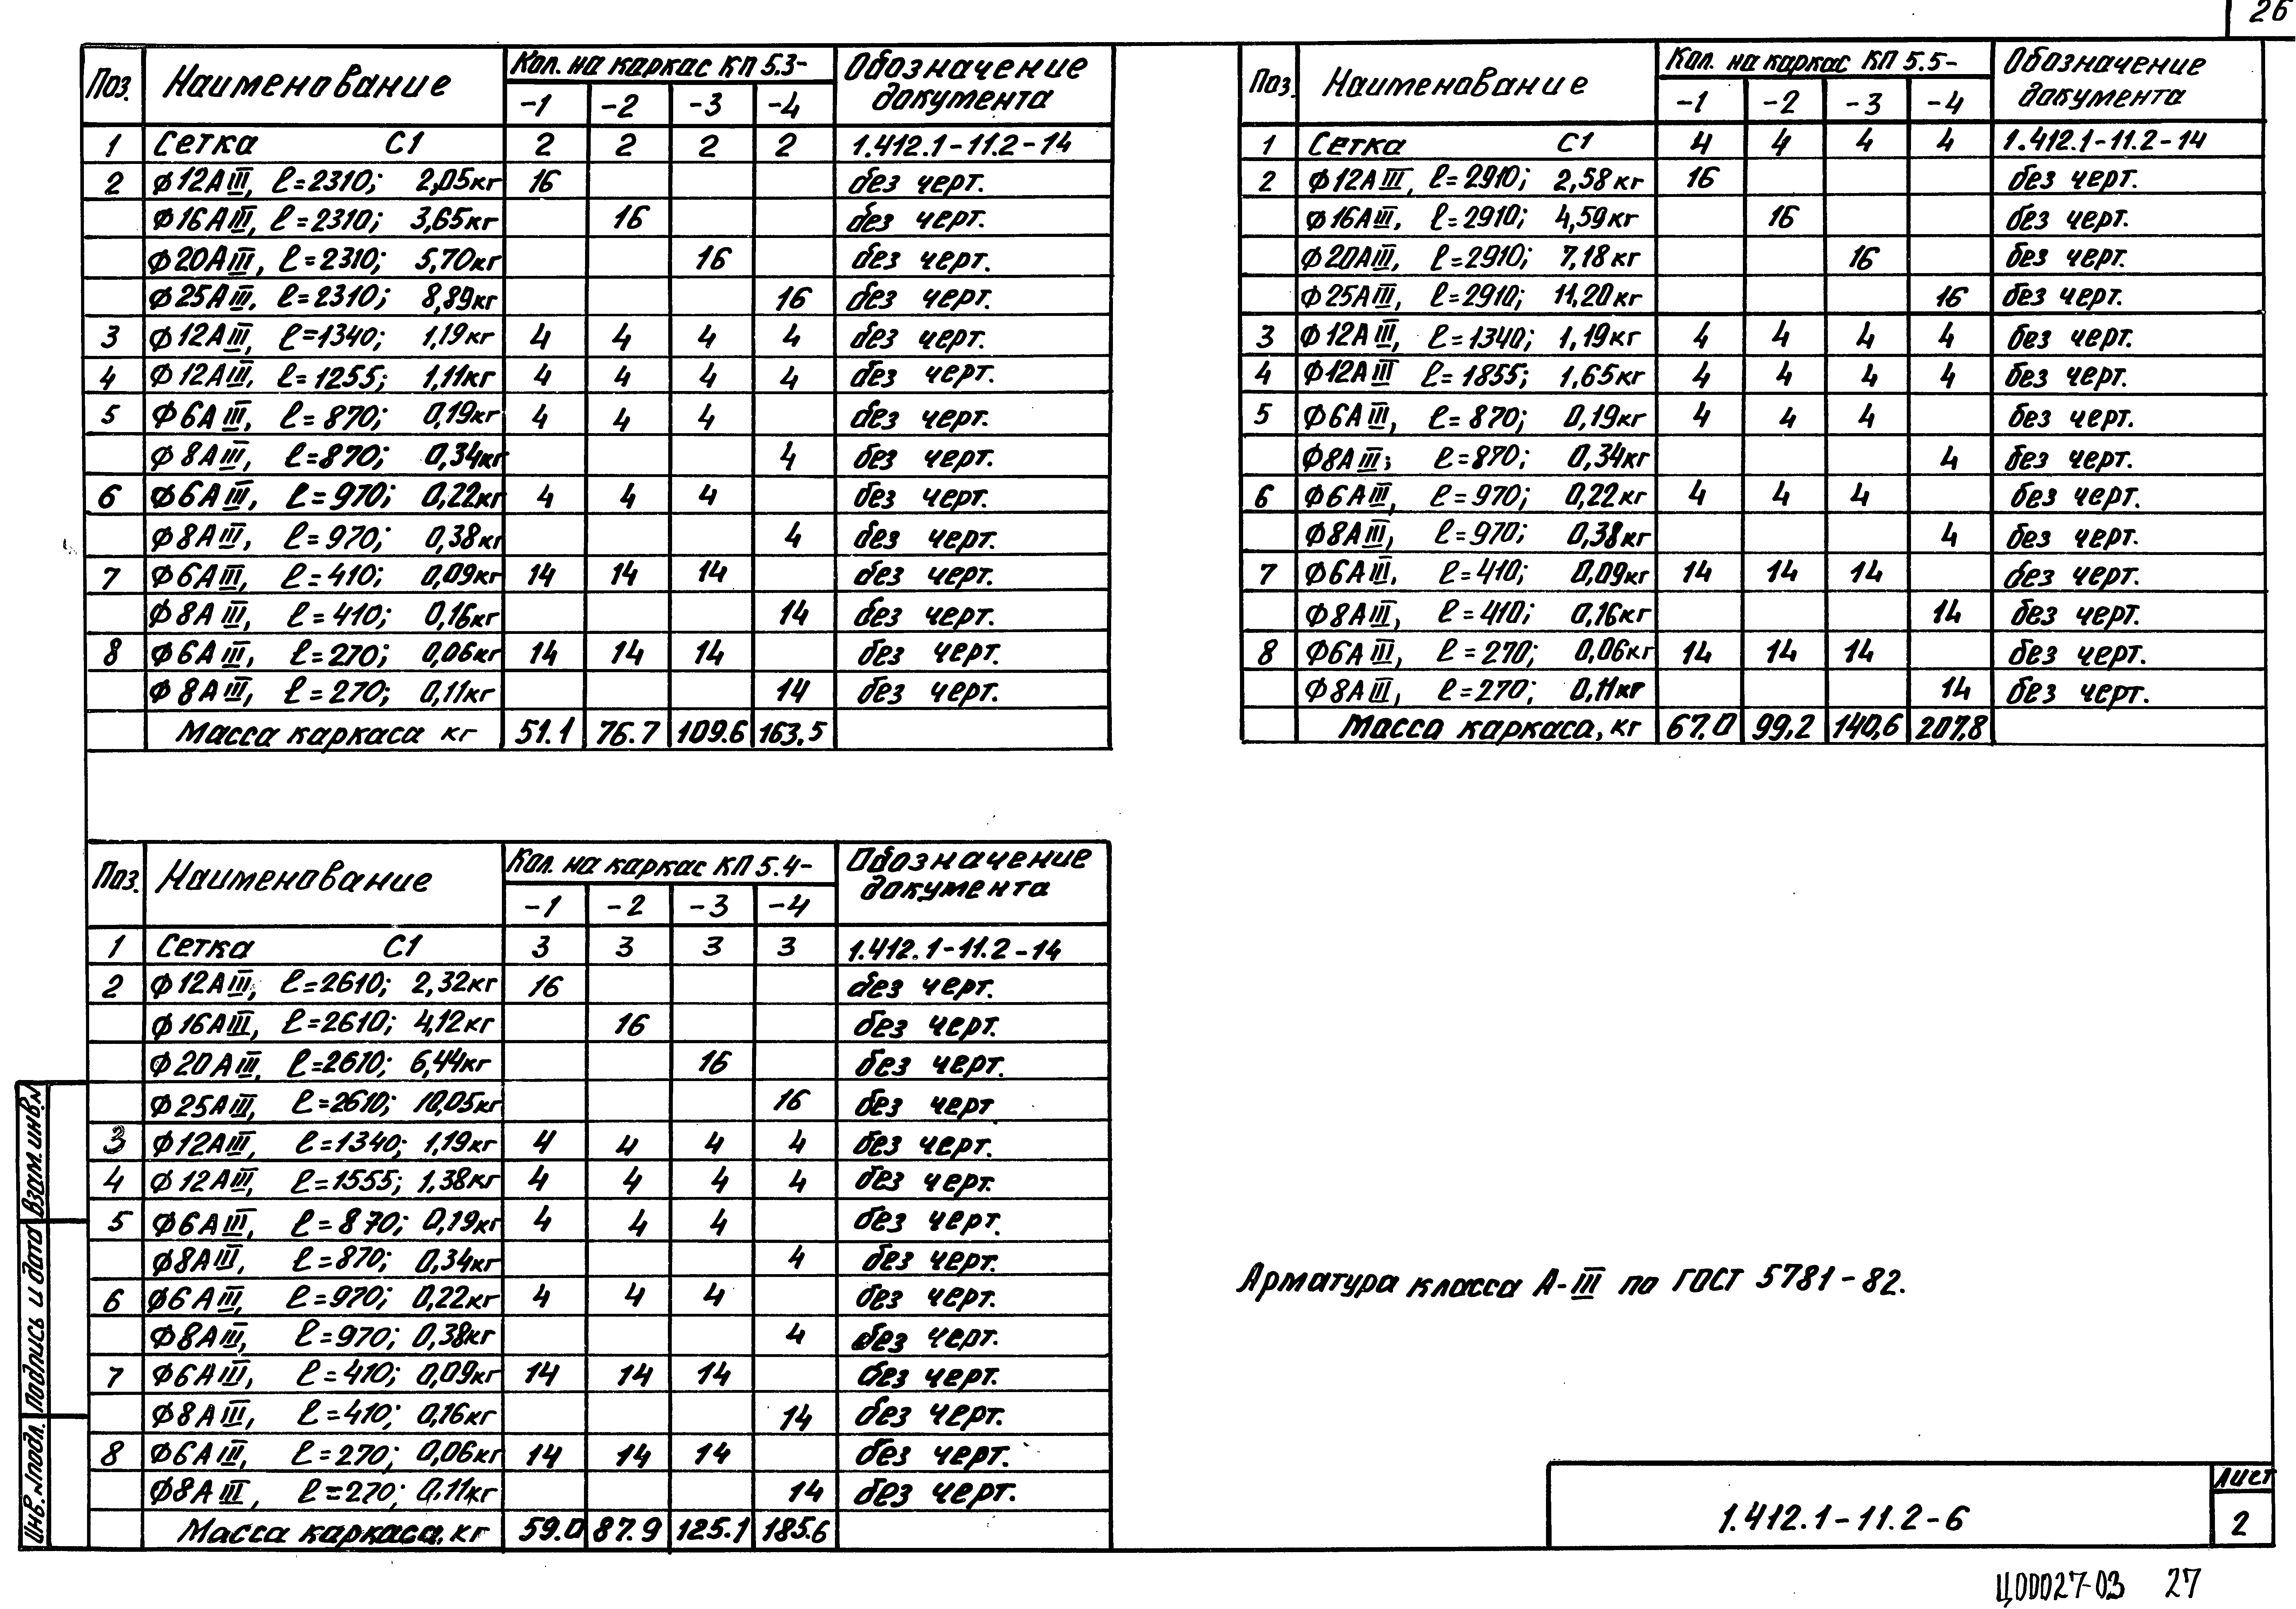 26
Поз. Наименование Кол. на каркас КП 5.3- Обозначение документа
-1 -2 -3 -4
1 Сетка С1 2 2 2 2 1.412.1-11.2-14
2 Ф12АIII, ℓ=2310; 2,05кг 16 без черт.
Ф16АIII, ℓ=2310; 3,65кг 16 без черт.
Ф20АIII, ℓ=2310; 5,70кг 16 без черт.
Ф25АIII, ℓ=2310; 8,89кг 16 без черт.
3 Ф12АIII, ℓ=1340; 1,19кг 4 4 4 4 без черт.
4 Ф12АIII, ℓ=1255; 1,11кг 4 4 4 4 без черт.
5 Ф6АIII, ℓ=870; 0,19кг 4 4 4 без черт.
Ф8АIII, ℓ=870; 0,34кг 4 без черт.
6 Ф6АIII, ℓ=970; 0,22кг 4 4 4 без черт.
Ф8АIII, ℓ=970; 0,38кг 4 без черт.
7 Ф6АIII, ℓ=410; 0,09кг 14 14 14 без черт.
Ф8АIII, ℓ=410; 0,16кг 14 без черт.
8 Ф6АIII, ℓ=270; 0,06кг 14 14 14 без черт.
Ф8АIII, ℓ=270; 0,11кг 14 без черт.
Масса каркаса кг 51.1 76.7 109.6 163.5
Поз. Наименование Кол. на каркас КП 5.4- Обозначение документа
-1 -2 -3 -4
1 Сетка С1 3 3 3 3 1.412.1-11.2-14
2 Ф12АIII, ℓ=2610; 2,32кг 16 без черт.
Ф16АIII, ℓ=2610; 4,12кг 16 без черт.
Ф20АIII, ℓ=2610; 6,44кг 16 без черт.
Ф25АIII, ℓ=2610; 10,05кг 16 без черт
3 Ф12АIII, ℓ=1340; 1,19кг 4 4 4 4 без черт.
4 Ф12АIII, ℓ=1555; 1,38кг 4 4 4 4 без черт.
5 Ф6АIII, ℓ=870; 0,19кг 4 4 4 без черт.
Ф8АIII, ℓ=870; 0,34кг 4 без черт.
6 Ф6АIII, ℓ=970; 0,22кг 4 4 4 без черт.
Ф8АIII, ℓ=970; 0,38кг 4 без черт.
7 Ф6АIII, ℓ=410; 0,09кг 14 14 14 без черт.
Ф8АIII, ℓ=410; 0,16кг 14 без черт.
8 Ф6АIII, ℓ=270; 0,06кг 14 14 14 без черт.
Ф8АIII, ℓ=270; 0,11кг 14 без черт.
Масса каркаса, кг 59.0 87.9 125.1 185.6
Поз. Наименование Кол. на каркас КП 5.5- Обозначение документа
-1 -2 -3 -4
1 Сетка С1 4 4 4 4 1.412.1-11.2-14
2 Ф12АIII, ℓ=2910; 2,58кг 16 без черт.
Ф16АIII, ℓ=2910; 4,59кг 16 без черт.
Ф20АIII, ℓ=2910; 7,18кг 16 без черт.
Ф25АIII, ℓ=2910; 11,20кг 16 без черт.
3 Ф12АIII, ℓ=1340; 1,19кг 4 4 4 4 без черт.
4 Ф12АIII ℓ=1855; 1,65кг 4 4 4 4 без черт.
5 Ф6АIII, ℓ=870; 0,19кг 4 4 4 без черт.
Ф8АIII; ℓ=870; 0,34кг 4 без черт.
6 Ф6АIII, ℓ=970; 0,22кг 4 4 4 без черт.
Ф8АIII, ℓ=970; 0,38кг 4 без черт.
7 Ф6АIII, ℓ=410; 0,09кг 14 14 14 без черт.
Ф8АIII, ℓ=410; 0,16кг 14 без черт.
8 Ф6АIII, ℓ=270; 0,06кг 14 14 14 без черт.
Ф8АIII, ℓ=270; 0,11кг 14 без черт.
Масса каркаса, кг 67.0 99,2 140,6 207,8
Арматура класса А-III по ГОСТ 5781-82.
Взам.инв.№
Подпись и дата
Инв.№подл.
1.412.1-11.2-6
Лист
2
Ц00027-03 27